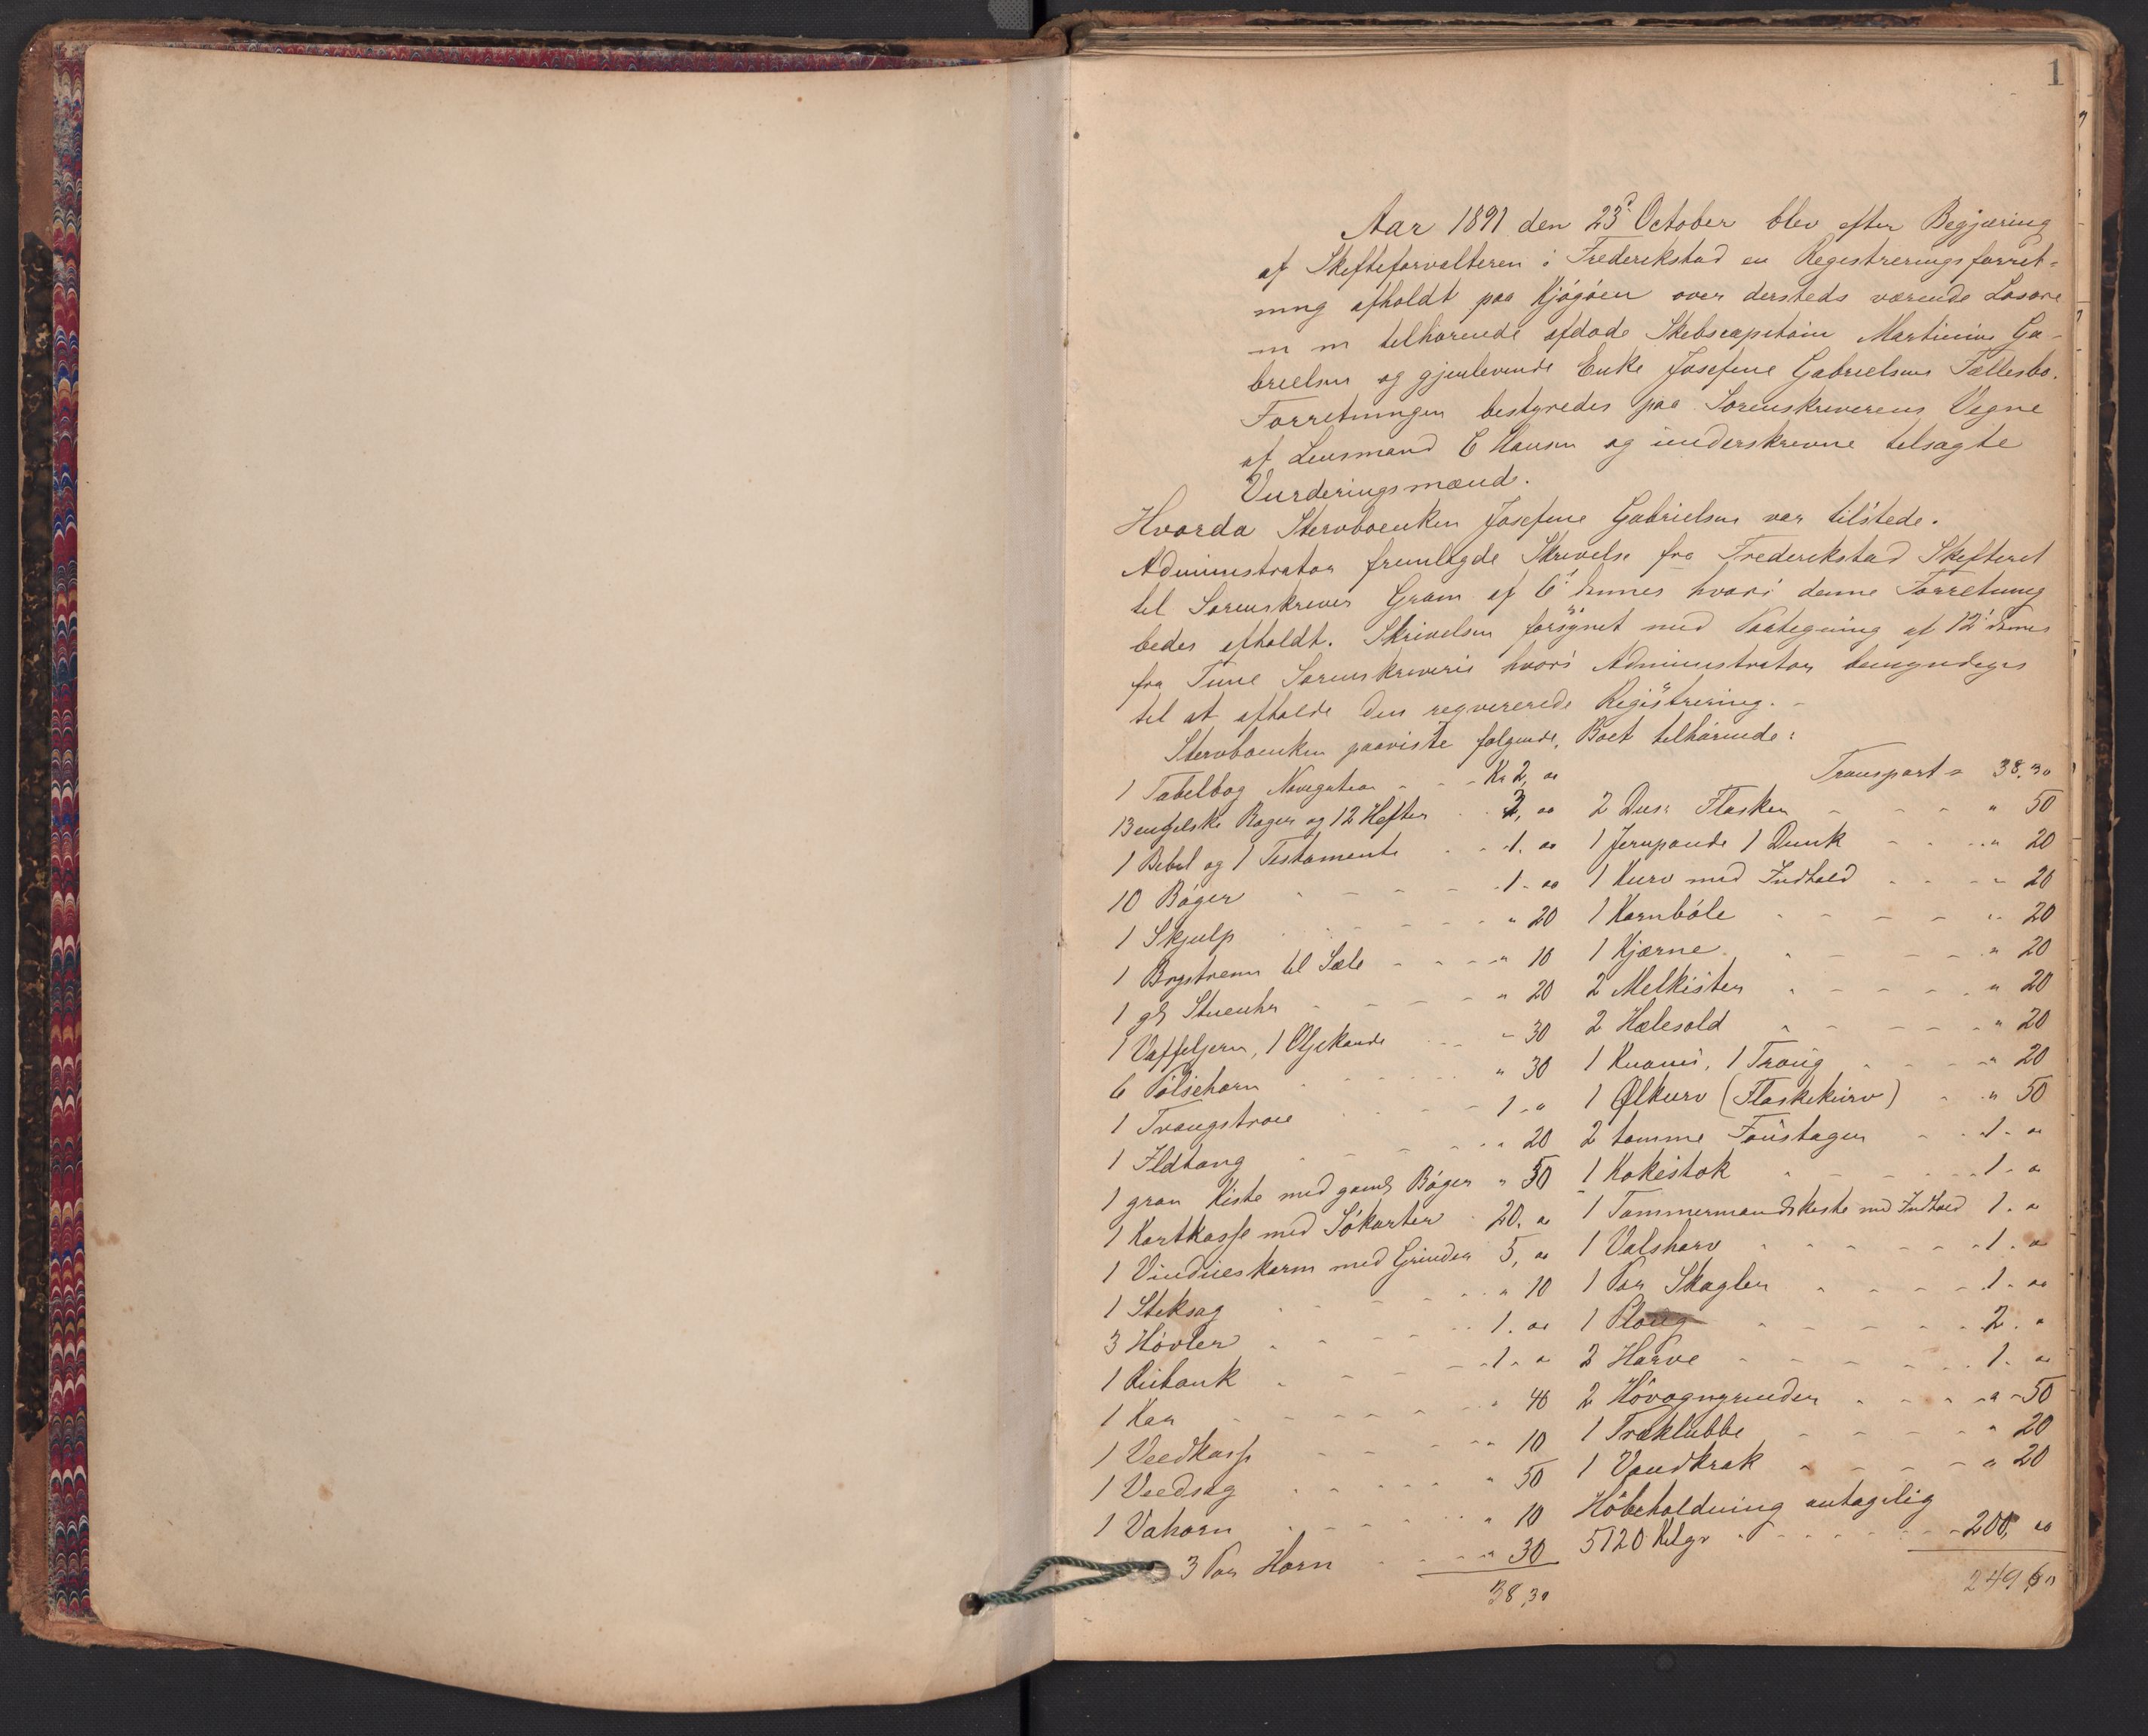 1
Aar 1891 den 23d October blev efter Begjæring
af Skifteforvalteren i Frederikstad en Registreringsforret-
ning afholdt paa Kjøgøen over dersteds værende Løsøre
m m tilhørende afdøde Skibscapitain Martinius Ga-
brielsen og gjenlevende Enke Josefine Gabrielsens Fællesbo.
Forretningen bestyredes paa Sorenskriverens Vegne
af Lensmand C Hansen og underskrevne tilsagte
Vurderingsmænd.
Hvorda Stervboenken Josefine Gabrielsen var tilstede.
Administrator fremlagde Skrivelse fra Frederikstad Skifteret
til Sorenskriver Gram af 6' dennes hvori denne Forretning
bedes afholdt. Skrivelsen forsynet med Paategning af 12' dennes
fra Tune Sorenskriveri hvori Administrator bemyndiges
til at afholde den reqvirerede Registrering.
Stervboenken paaviste følgende, Boet tilhørende:
1 Tabelbog Navigation - - Kr 2, 00
13 engelske Bøger og 12 Hefter - 2, 00
1 Bibel og 1 Testamente - - 1. 00
10 Bøger - - - - 1. 00
1 Skjulp - - - - " 20
1 Brystrem til Sæle - - - " 10
1 gl Stueuhr - - - - " 20
1 Vaffeljern, 1 Oljekande - - " 30
6 Pølsehorn - - - - " 30
1 Tvangstrøie - - - - 1 - "
1 Ildtang - - - - " 20
1 grøn Kiste med gamle Bøger " 50
1 Kartkasse med Søkarter - 20. "
1 Vindueskarm med Grinder 5, 00
1 Stiksag - - - - " 10
3 Høvler - - - - 1. 00
1 Rubank - - - - 1. "
1 Kar - - - - " 40
1 Veedkasse - - - - " 10
1 Veedsag - - - - " 50
1 Vahorn - - - - " 10
3 Par Horn - - - " 30
38,30
Transport = 38.30
2 Dus: Flasker - - - - " 50
1 Jernpande 1 Dunk - - - " 20
1 Kurv med Indhold - - - " 20
1 Kornbøle - - - - " 20
1 Kjærne - - - - " 20
2 Melkister - - - - " 20
2 Hælesold - - - - " 20
1 , 1 Traug - - - " 20
1 Ølkurv (Flaskekurv) - - " 50
2 tomme Foustager - - 1. "
1 Kakestok - - - - 1. "
1 Tømmermandskiste med Indhold 1. "
1 Valsharv - - - - 1. "
1 Par Skagler - - - - 1. 00
1 Ploug - - - - 2. "
2 Harve - - - - 1. 00
2 Høvogngrinder - - - " 50
1 Træklubbe - - - - " 20
1 Vandkrak - - - - " 20
Høbeholdning antagelig
5120 Kilgr - - - - 200, 00
249,60